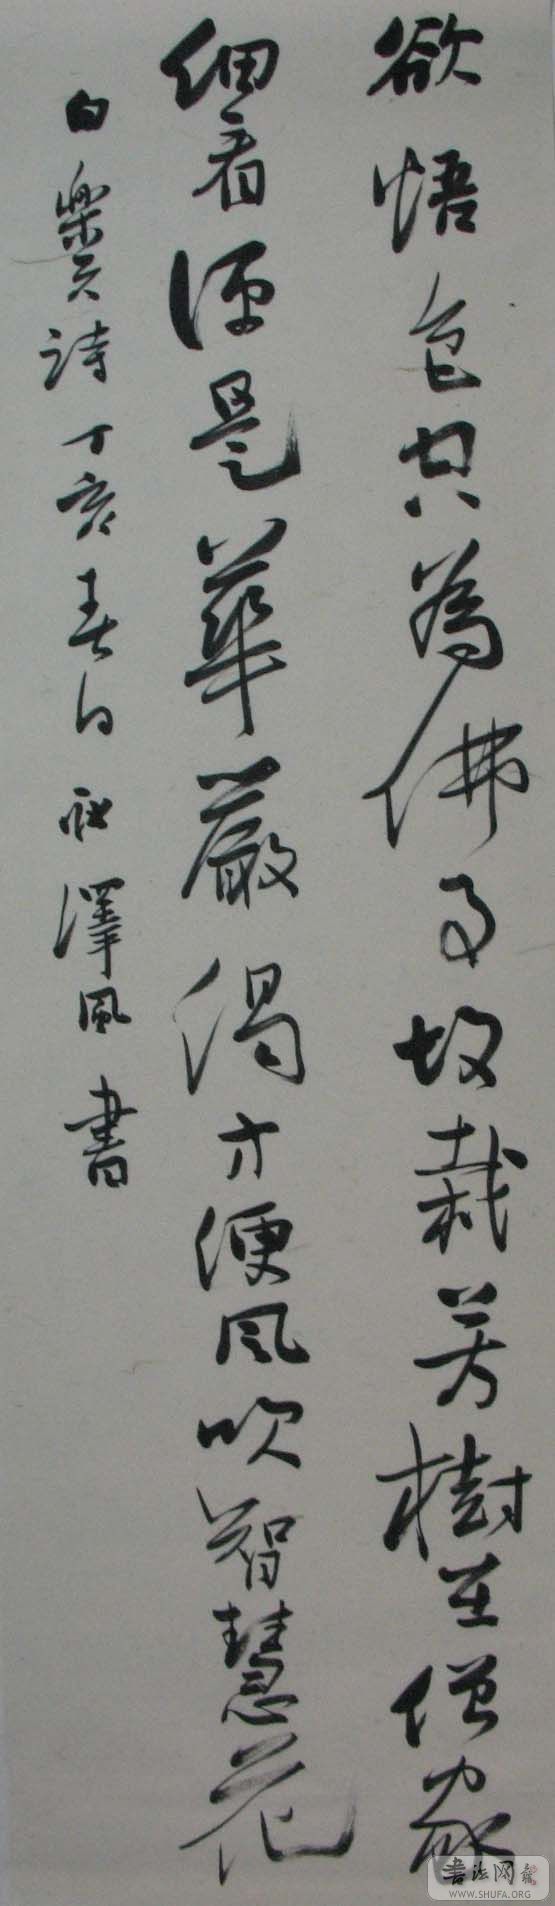 欲悟色空為佛事故栽芳樹在僧家
細看便是華嚴偈方便風吹智慧花
白樂天詩丁亥春日 澤風書
書法网
WWW.SHUFA.ORG